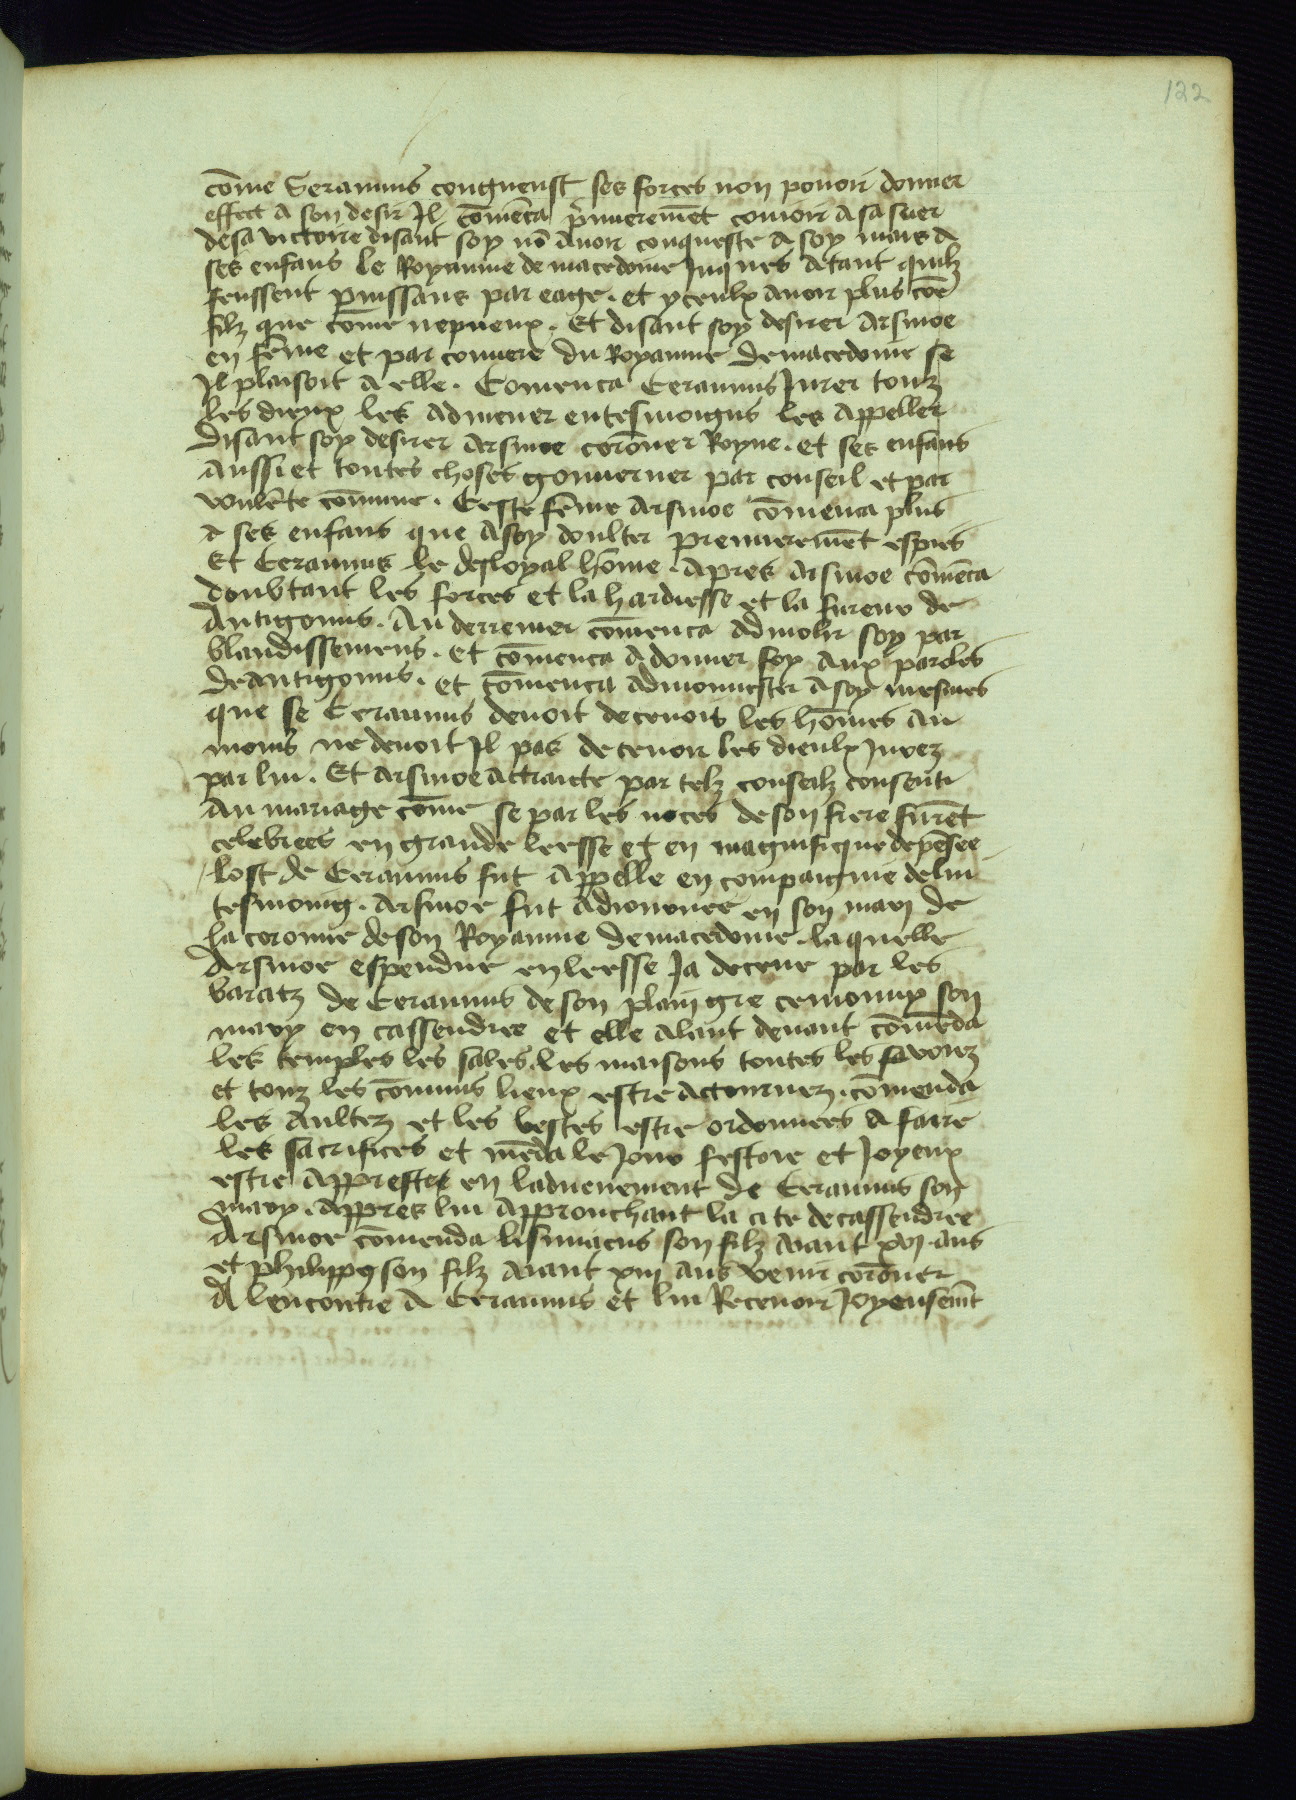 122
cōme Seraunus congneust ses forces non pouoir donner
effect a son desir Il cōmēca p̄mieremēt conioir a sa suer
de sa victoire disant soy nō auoir conqueste a soy mais a
ses enfans le Royaume de macedoine Iuques atant quilz
feussent puissans par eage . et yceulx auoir plus cōe
filz que cōme nepueux . Et disant soy desirer Arsinoe
en fēme et parconiere du Royaume de macedoine se
Il plaisoit a elle . Comenca Ceraunus Iurer touz
les dieux les admener en tesmoigns les appeller
disant soy desirer Arsinoe corōner Royne . et ses enfans
aussi et toutes choses gouuerner par conseil et par
voulēte cōmune . Ceste fēme Arsinoe cōmenca plus
a ses enfans que a soy doulter premieremēt espies
Et Ceraunus le desloyal hōme . Apres Arsinoe cōmēca
doubtant les forces et la hardiesse et la fureur de
Antigonus . Au derrenier cōmenca admolir soy par
blandissemens . et cōmenca a donner foy aux paroles
de antigonus . et cōmenca admonnester a soy mesmes
que se Ceraunus deuoit deceuoir les hōmes au
moins ne deuoit Il pas deceuoir les dieulx Iurez
par lui . Et Arsinoe attraicte par telz conseilz consenti
au mariage cōme se par les noces de son frere furēt
celebrees en grande leesse et en magnifique depēsee
lost de Ceraunus fut appelle en compaignie de lui
tesmoing . Arsinoe fut adiournee en son mary de
la coronne de son Royaume de macedoine . laquelle
Arsinoe espendue en leesse Ja deceue par les
baratz de Ceraunus de son plain gre semonnix son
mary en cassendree et elle alant deuant cōmēda
les temples les sales les maisons toutes les
et touz les cōmuns lieux estre actournez . cōmenda
les aultez et les bestes estre ordonnees a faire
les sacrifices et mēda le Jour festoie et Joyeux
estre apprestez en laduenement de Ceraunus son
mary . Appres lui approuchant la cite de cassendree
Arsinoe cōmenda lisimacus son filz aiant xvj . ans
et philippꝯ son filz aiant xiij ans venir corōner
A lencontre a Ceraunus et lui Receuoir Joyeusemēt